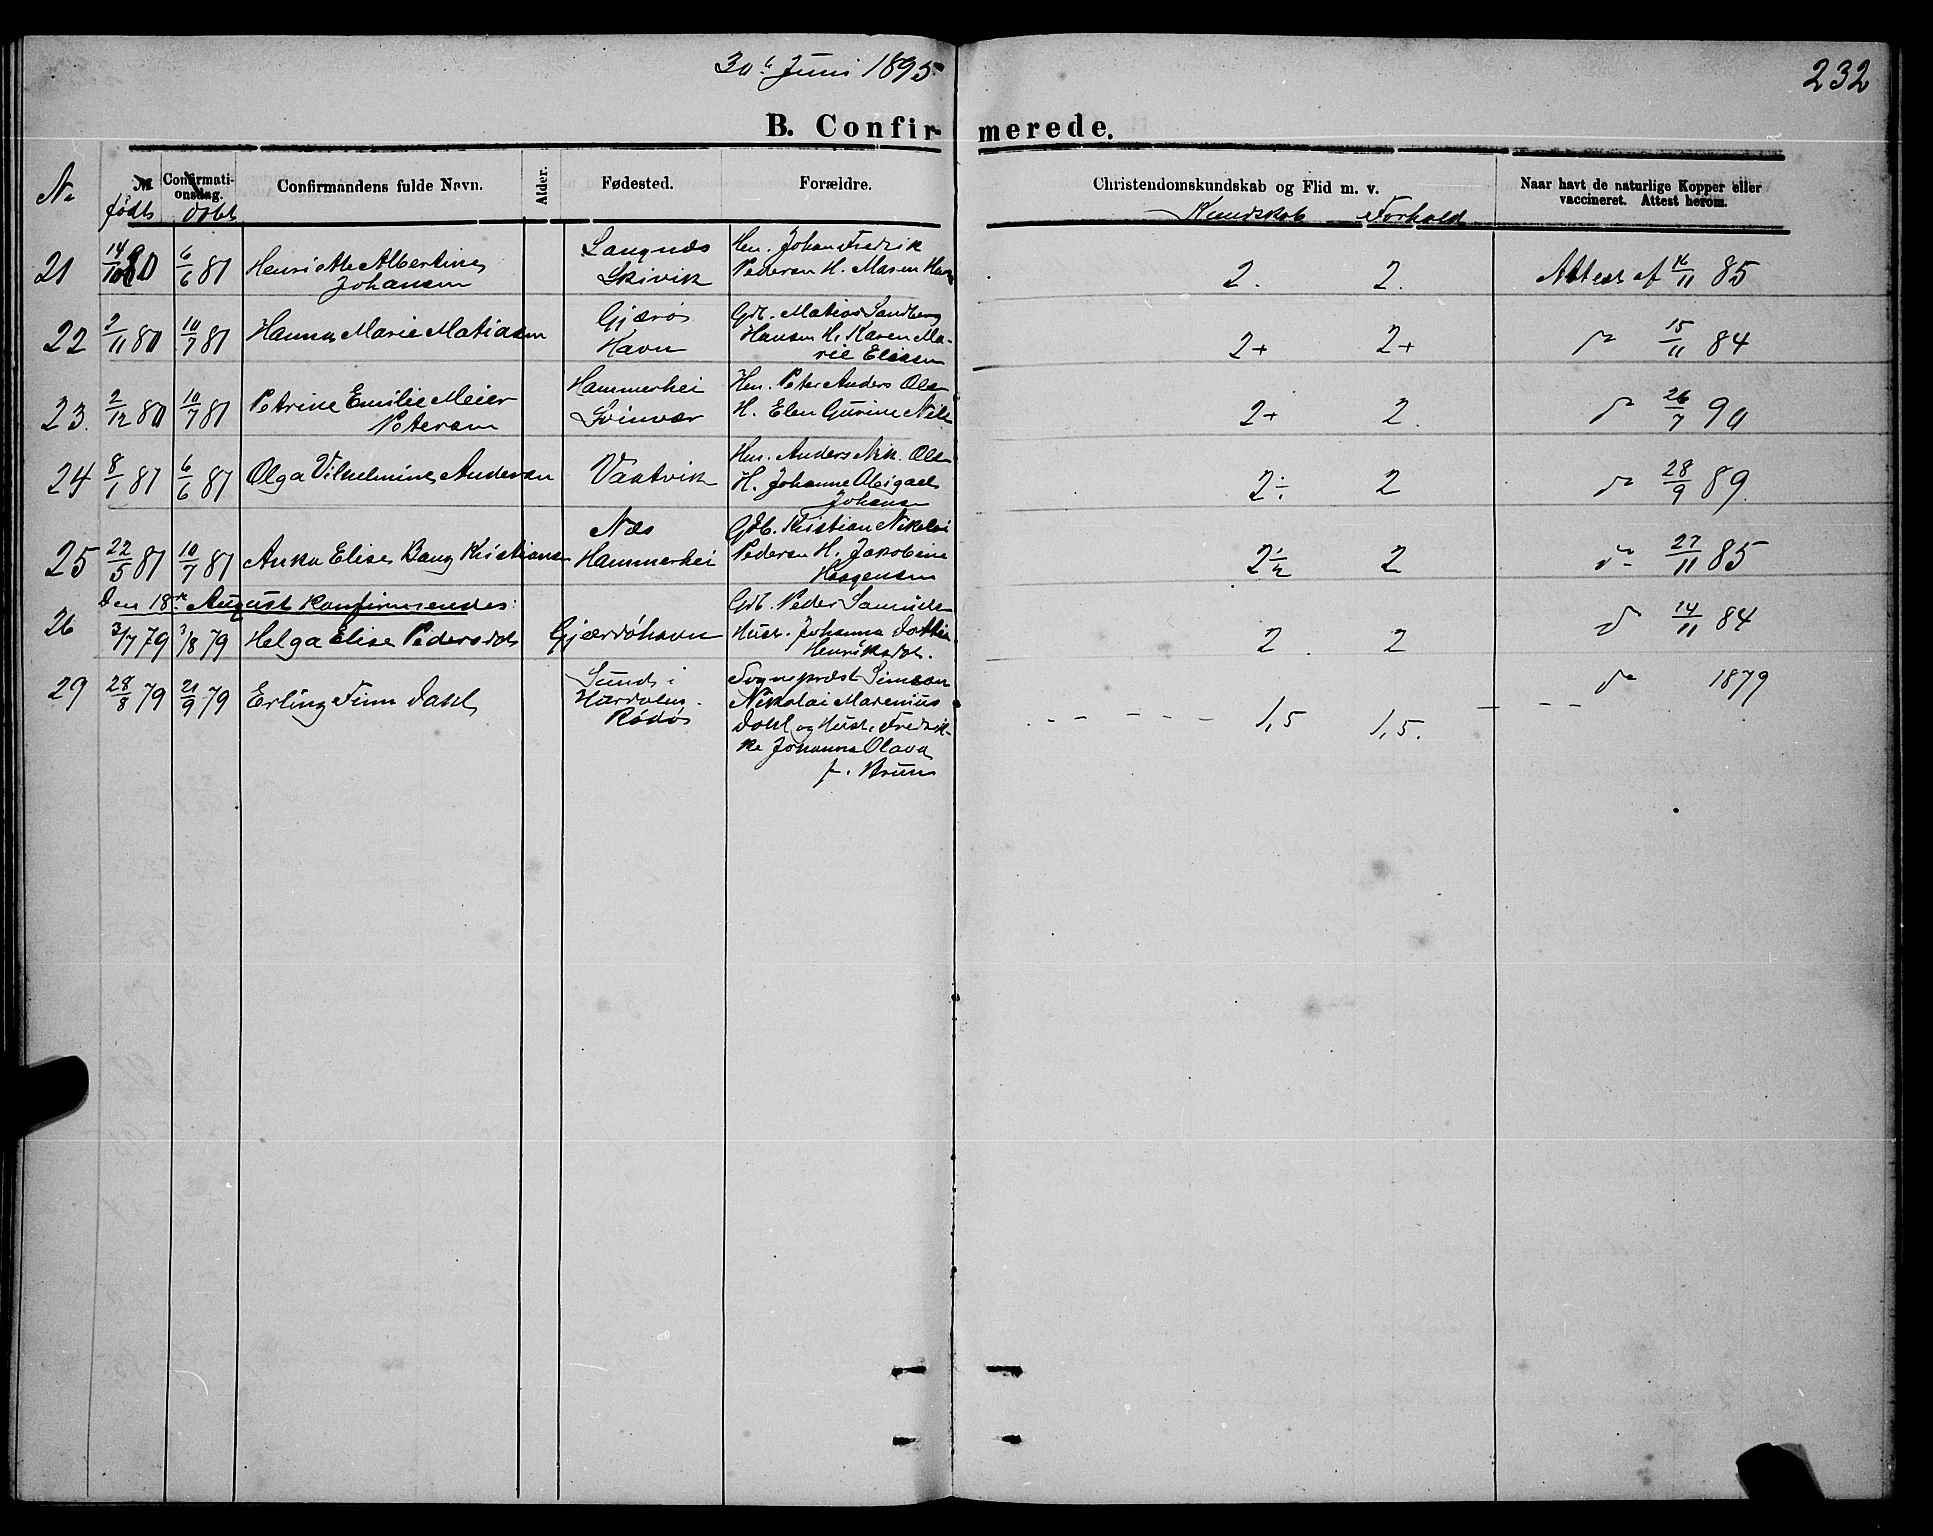 30te Juni 1895
232
B. Confirmerede.
No
født
Confirmationsdag.
døbt
Confirmandens fulde Navn.
Alder.
Fødested.
Forældre.
Christendomskundskab og Flid m. v.
Kundskab Forhold
Naar havt de naturlige Kopper eller
vaccineret. Attest herom.
21 14/10 80 6/6 81 Henriette Albertine
Johansen
Langnæs
Skivik
Hm. Johan Fredrik
Pedersen H. Maren
2. 2. Attest af 16/11 85
22 2/11 80 10/7 81 Hanna Marie Matiasen
Gjærø
Havn
Gdb. Matias Sandberg
Hansen H. Karen Ma-
rie Eliasen
2+ 2+ do 15/11 84
23. 2/12 80 10/7 81 Petrine Emilie Meier
Petersen
Hammerhei
Svinvær
Hm. Peter Anders Olsen
H. Elen Gurine Nils
2+ 2. do 26/7 90
24 8/1 81 6/6 81 Olga Vilhelmine Andersen
Vaatvik
Hm. Anders Nik. Olsen
H. Johanne Abigael
Johansen
2÷ 2 do 28/9 89.
25 22/5 81 10/7 81 Anka Elise Bang Kristians
Næs
Hammerhei
Gdb. Kristian Nikolai
Pedersen H. Jakobine
Haagensen
2½ 2 do 27/11 85
Den 18de August konfirmeredes:
26 3/7 79 3/8 79 Helga Elise Pedersdot
Gjærdøhavn
Gdb. Peder Samuels
Hust. Johanna Dothea
Henriksdot.
2. 2 do 14/11 84
29 28/8 79 21/9 79 Erling Finn Dahl
Sund i
Rødø
Sogneprest Simeon
Nikolai Marenius
Dahl og Hust. Fredrik-
ke Johanna Olava
f. Bruun
1,5 1,5. do 1879